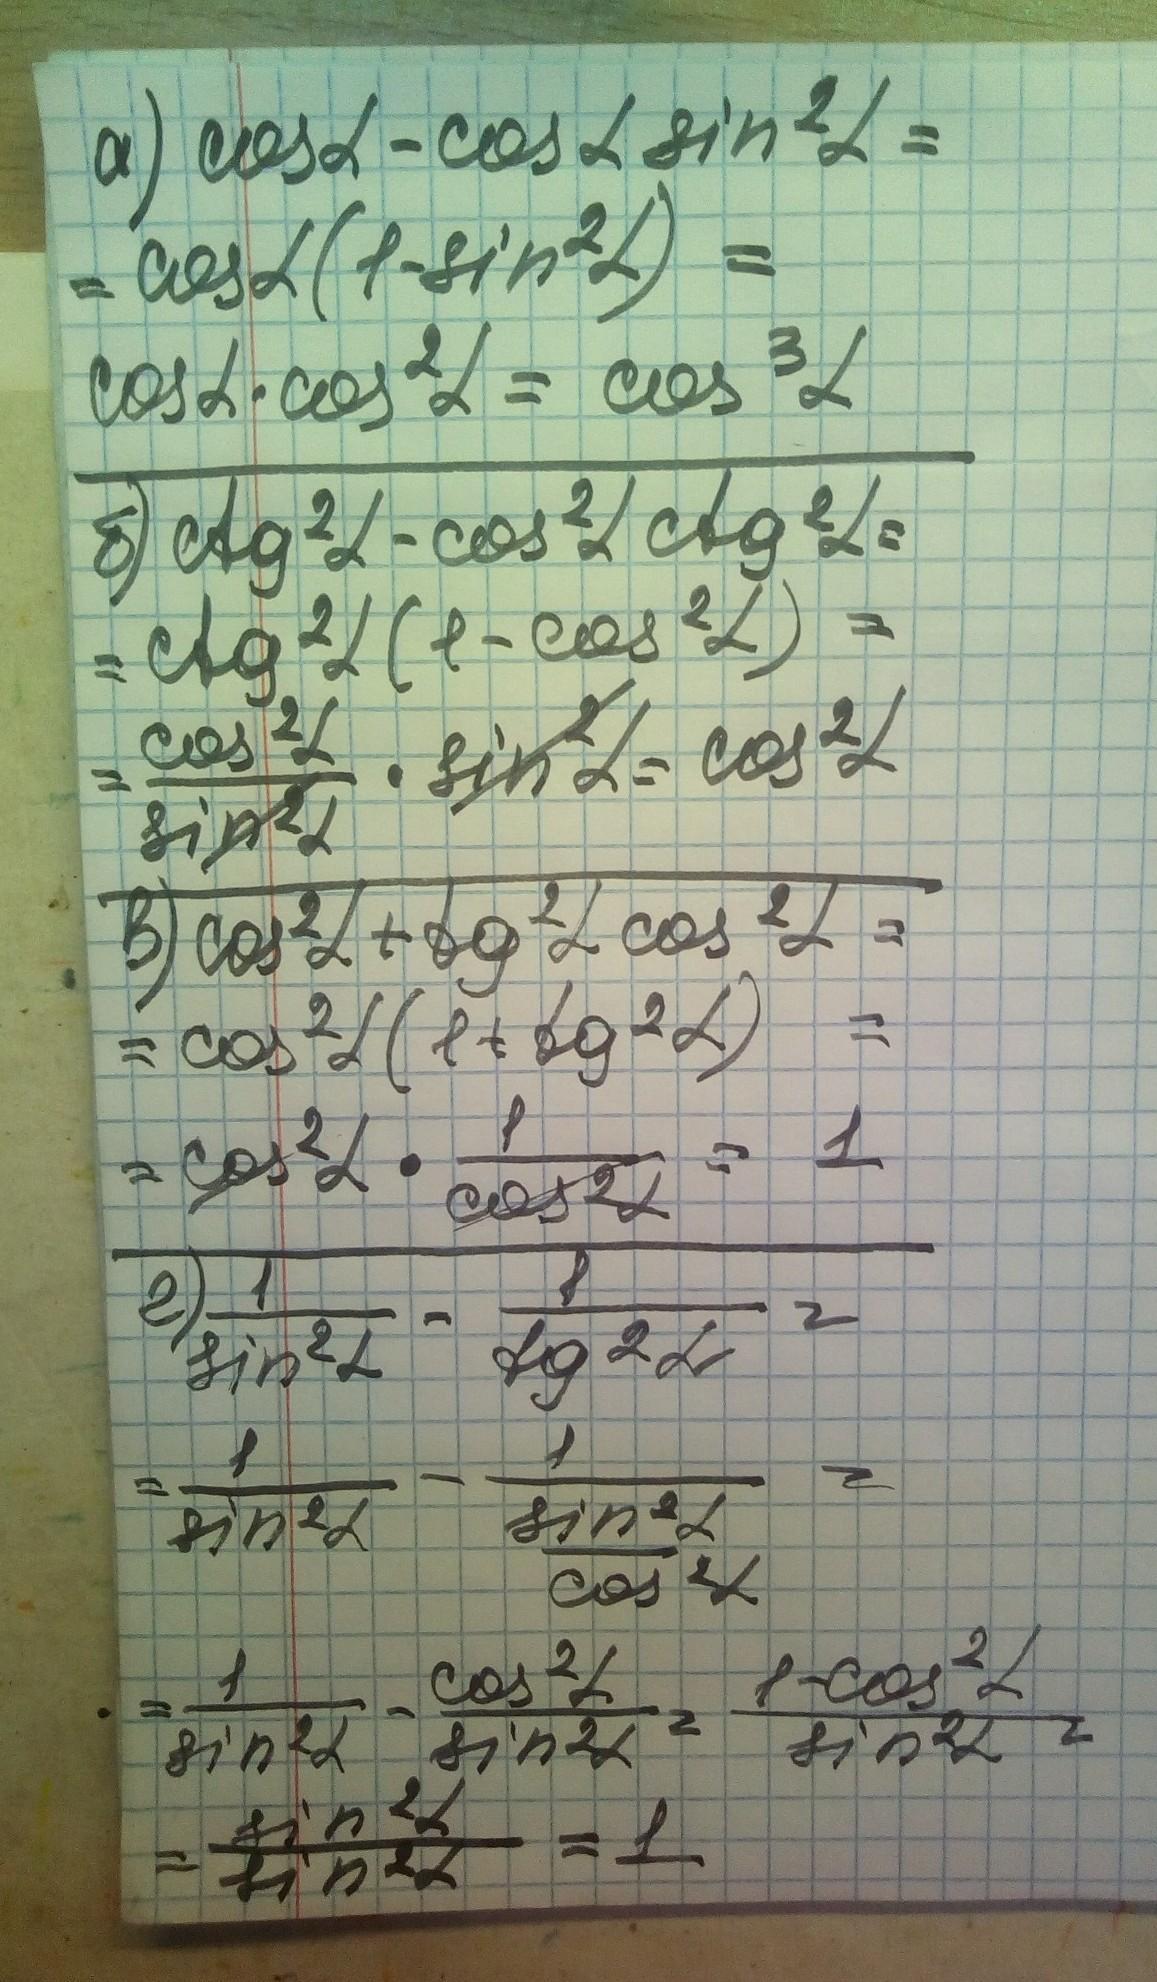 а) cosα - cosα sin²α =
= cosα(1-sin²α) =
cosα·cos²α = cos³α
б) ctg²α - cos²α ctg²α =
= ctg²α(1 - cos²α) =
= cos²α/sin²α · sin²α = cos²α
в) cos²α + tg²α cos²α =
= cos²α(1 + tg²α) =
= cos²α · 1/cos²α = 1
г) 1/sin²α - 1/tg²α =
= 1/sin²α - 1/(sin²α/cos²α) =
= 1/sin²α - cos²α/sin²α = (1-cos²α)/sin²α =
= sin²α/sin²α = 1